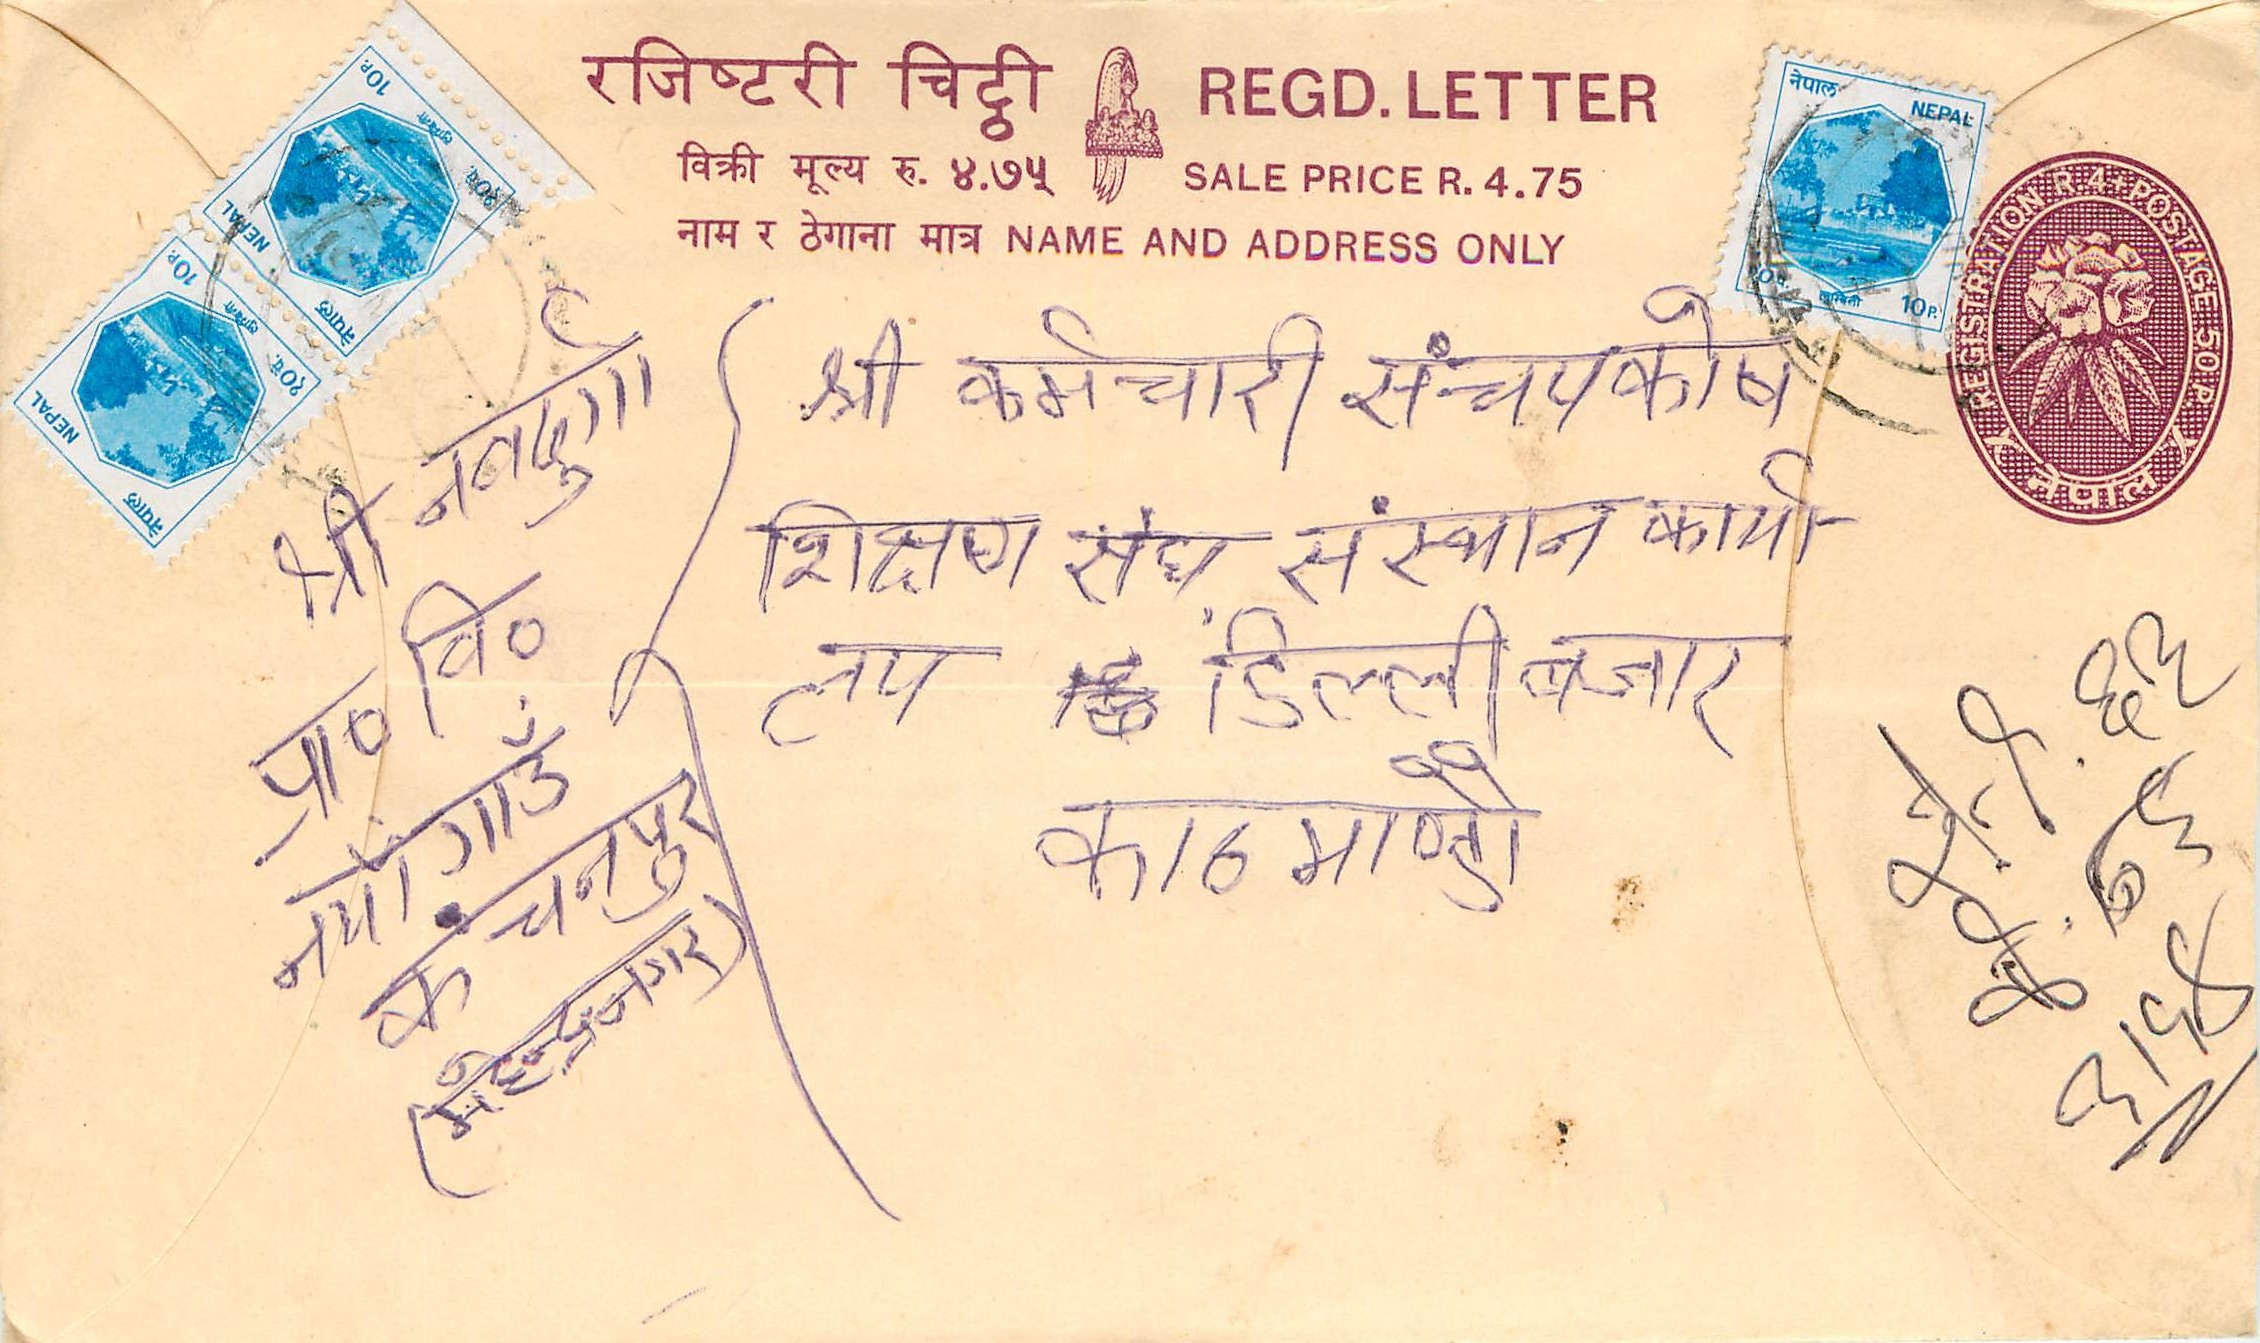 रजिष्टरी चिट्ठी REGD. LETTER
विक्री मूल्य रु. ४.७५ SALE PRICE R. 4.75
नाम र ठेगाना मात्र NAME AND ADDRESS ONLY
10P. लुम्बिनी १०प. NEPAL नेपाल
10P. लुम्बिनी १०प. NEPAL नेपाल
नेपाल NEPAL
१०प. लुम्बिनी 10P.
REGISTRATION R. 4+POSTAGE 50 P.
नेपाल
श्री कर्मचारी संन्चयकोष
शिक्षण संघ संस्थान कार्या
लय डिल्ली बजार
काठमाण्डौ
श्री नवदुर्गा
प्रा० वि०
नयाँगाउँ
कंचनपुर
(महेन्द्रनगर)